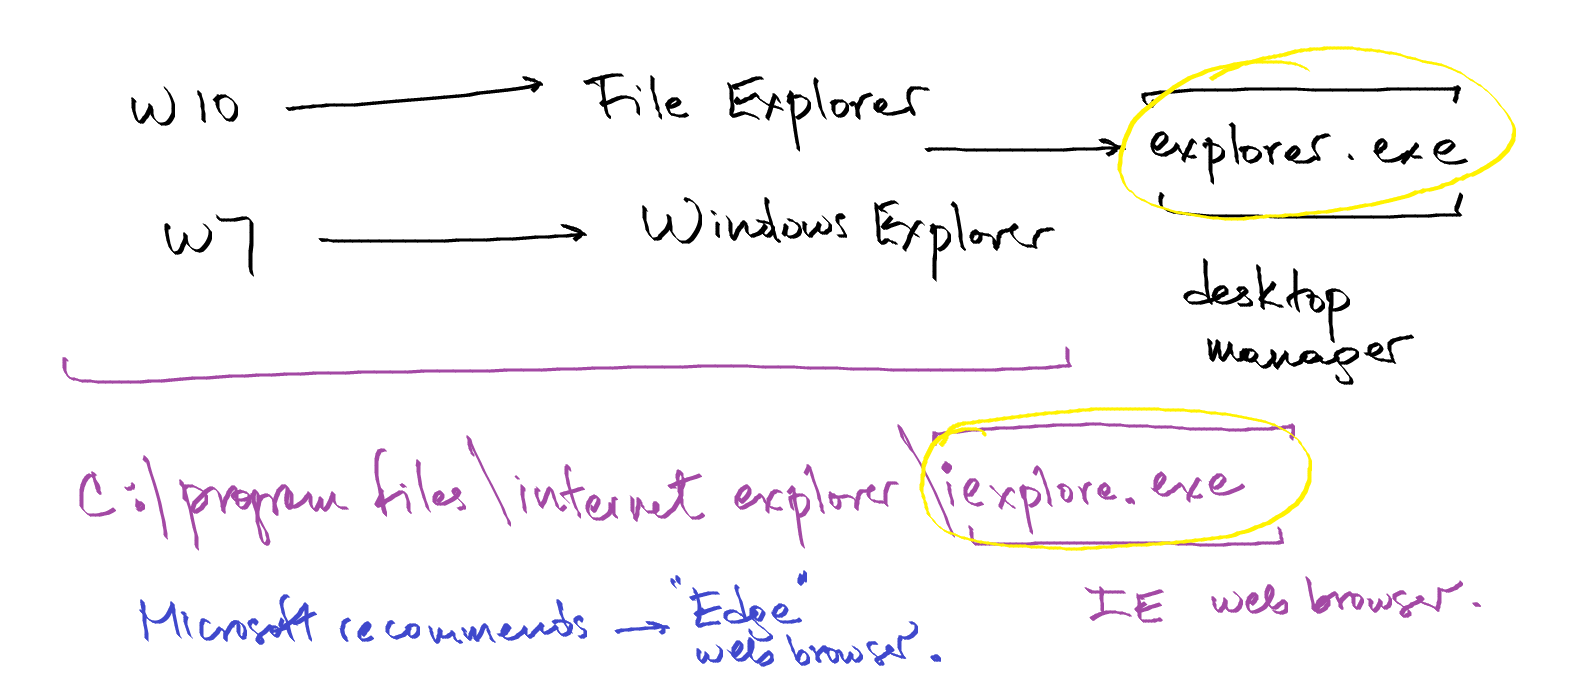 W10 → File Explorer → explorer.exe
W7 → Windows Explorer
desktop
manager
C:\program files\internet explorer\iexplore.exe
IE web browser.
Microsoft recommends → "Edge"
web browser.